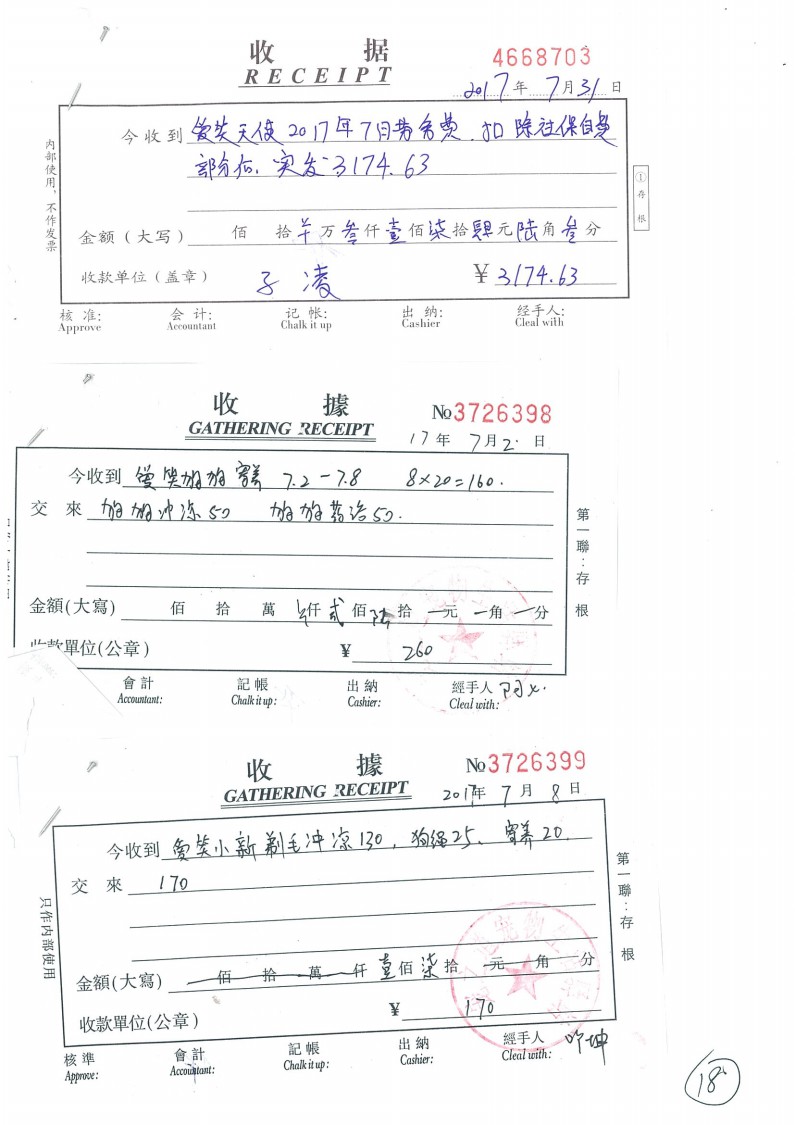 收 据
RECEIPT
4668703
2017年 7月31日
内部使用,不作发票
今收到 爱笑天使2017年7月劳务费,扣除社保自费
部分后,实发3174.63
①存根
金额(大写) 佰 拾 万叁仟壹佰柒拾肆元陆角叁分
收款单位(盖章) 子凌 ¥3174.63
核准: 会计: 记帐: 出纳: 经手人:
Approve Accountant Chalk it up Cashier Cleal with
收 據
GATHERING RECEIPT
No3726398
17年 7月2日
今收到 爱笑 寄养 7.2-7.8 8×20=160.
交 來 冲凉50 50.
第一聯:存根
金額(大寫) 佰 拾 萬 仟贰佰陆拾 元 角 分
收款單位(公章) ¥ 260
會計 記帳 出納 經手人
Accountant: Chalk it up: Cashier: Cleal with:
收 據
GATHERING RECEIPT
No3726399
2017年 7月8日
今收到 爱笑小新剃毛冲凉130,狗绳25、寄养20
交 來 170
第一聯:存根
只作内部使用
金額(大寫) 佰 拾 萬 仟壹佰柒拾 元 角 分
收款單位(公章) ¥ 170
核準 會計 記帳 出納 經手人
Approve: Accountant: Chalk it up: Cashier: Cleal with:
18